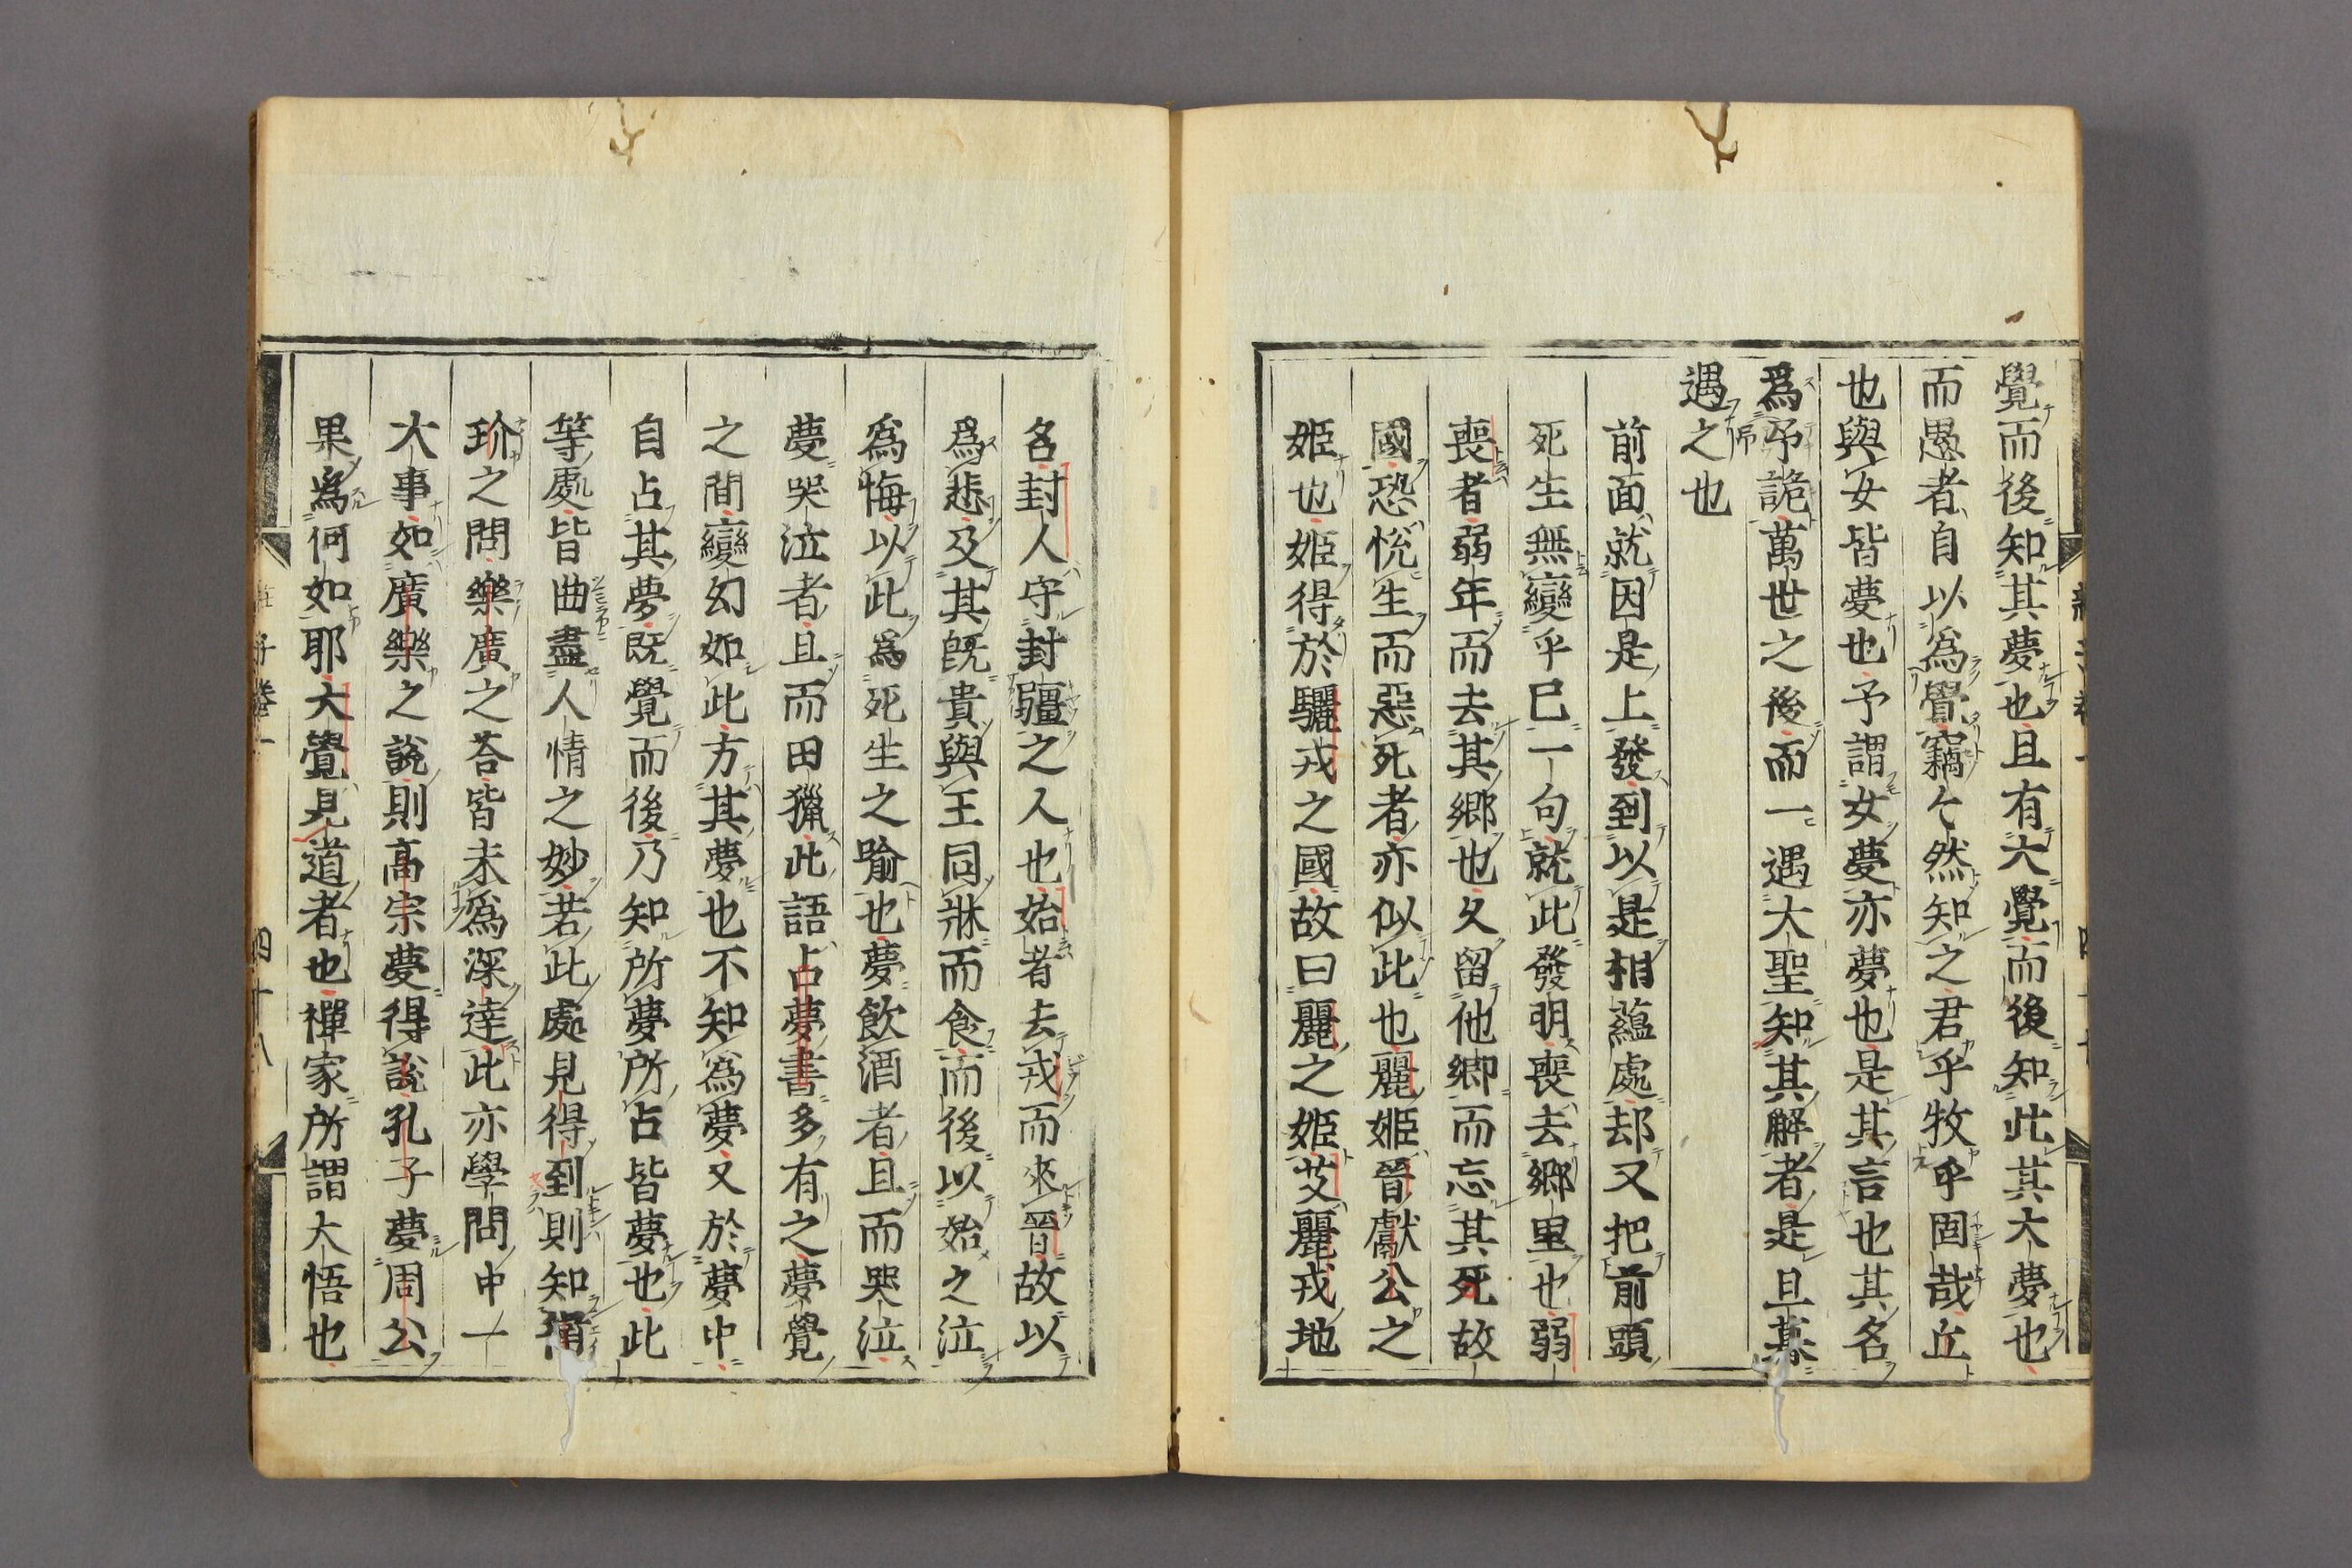 覺而後知其夢也且有大覺而後知此其大夢也
而愚者自以爲覺竊〻然知之君乎牧乎固哉丘
也與女皆夢也予謂女夢亦夢也是其言也其名
爲弔詭萬世之後而一遇大聖知其解者是旦暮
遇之也
前面就因是上發到以是相蘊處却又把前頭
死生無變乎巳一句就此發明喪去鄉里也弱
喪者弱年而去其鄉也久留他鄉而忘其死故
國恐悅生而惡死者亦似此也麗姬晉獻公之
姬也姬得於驪戎之國故曰麗之姬艾麗戎地
名封人守封疆之人也始者去戎而來晉故以
爲悲及其旣貴與王同牀而食而後以始之泣
爲悔以此爲死生之喻也夢飲酒者且而哭泣
夢哭泣者且而田獵此語占夢書多有之夢覺
之間變幻如此方其夢也不知爲夢又於夢中
自占其夢既覺而後乃知所夢所占皆夢也此
等處皆曲盡人情之妙若此處見得到則知
玠之問樂廣之荅皆未爲深達此亦學問中一
大事如廣樂之說則高宗夢得說孔子夢周公
果爲何如耶大覺見道者也禪家所謂大悟也
莊子卷一
四十八